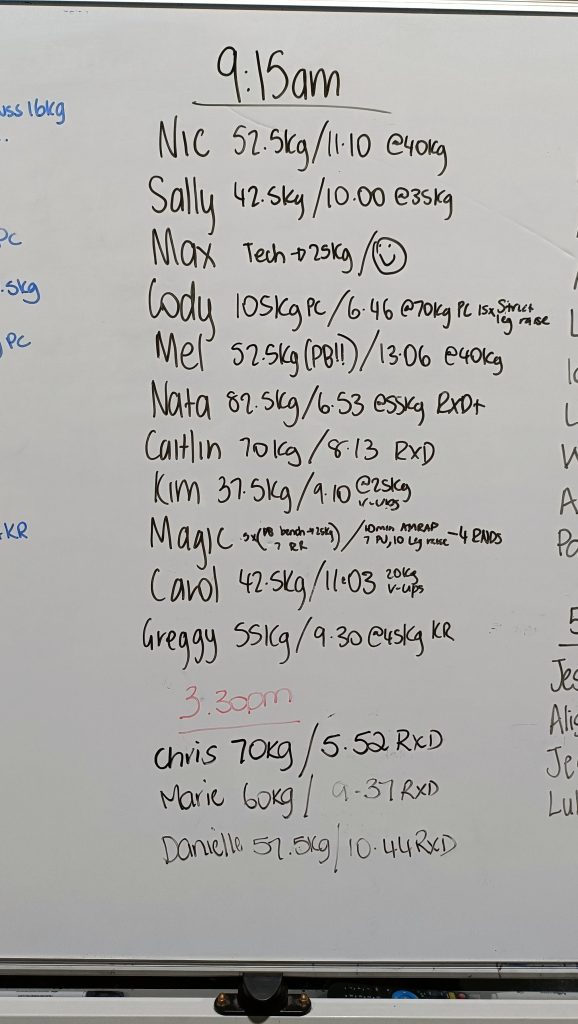 uss 16kg
PC
.5kg
PC
KR
9:15am
Nic 52.5kg/11.10 @40kg
Sally 42.5kg/10.00 @35kg
Max Tech → 25kg/☺
Cody 105kg PC/6.46 @70kg PC 15x Strict leg raise
Mel 52.5kg (PB!!)/13.06 @40kg
Nata 82.5kg/6.53 @55kg RXD+
Caitlin 70kg/8.13 RXD
Kim 37.5kg/9.10 @25kg v-ups
Magic 5x(PB bench → 25kg) 7 RR / 10min AMRAP 7 PU, 10 Leg raise - 4 RNDS
Carol 42.5kg/11:03 20kg v-ups
Greggy 55kg/9.30 @45kg KR
3.30pm
Chris 70kg/5.52 RXD
Marie 60kg/9.37 RXD
Danielle 57.5kg/10.44 RXD
L
W
A
Po
5
Jes
Alis
Je
Lul